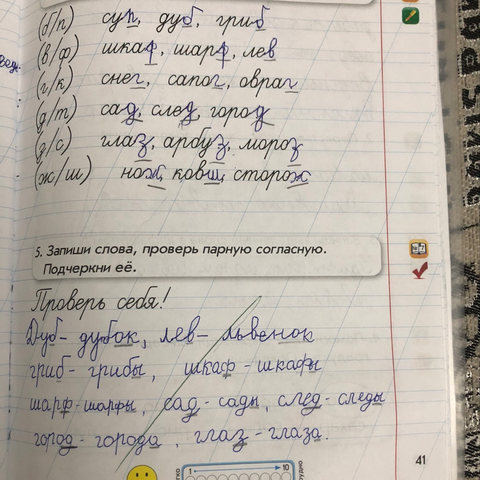 (б/п) суп, дуб, гриб
(в/ф) шкаф, шарф, лев
(г/к) снег, сапог, овраг
(д/т) сад, след, город
(з/с) глаз, арбуз, мороз
(ж/ш) нож, ковш, сторож
5. Запиши слова, проверь парную согласную.
Подчеркни её.
Проверь себя!
Дуб - дубок, лев - львенок
гриб - грибы, шкаф - шкафы
шарф - шарфы, сад - сады, след - следы
город - города, глаз - глаза.
41
1 10